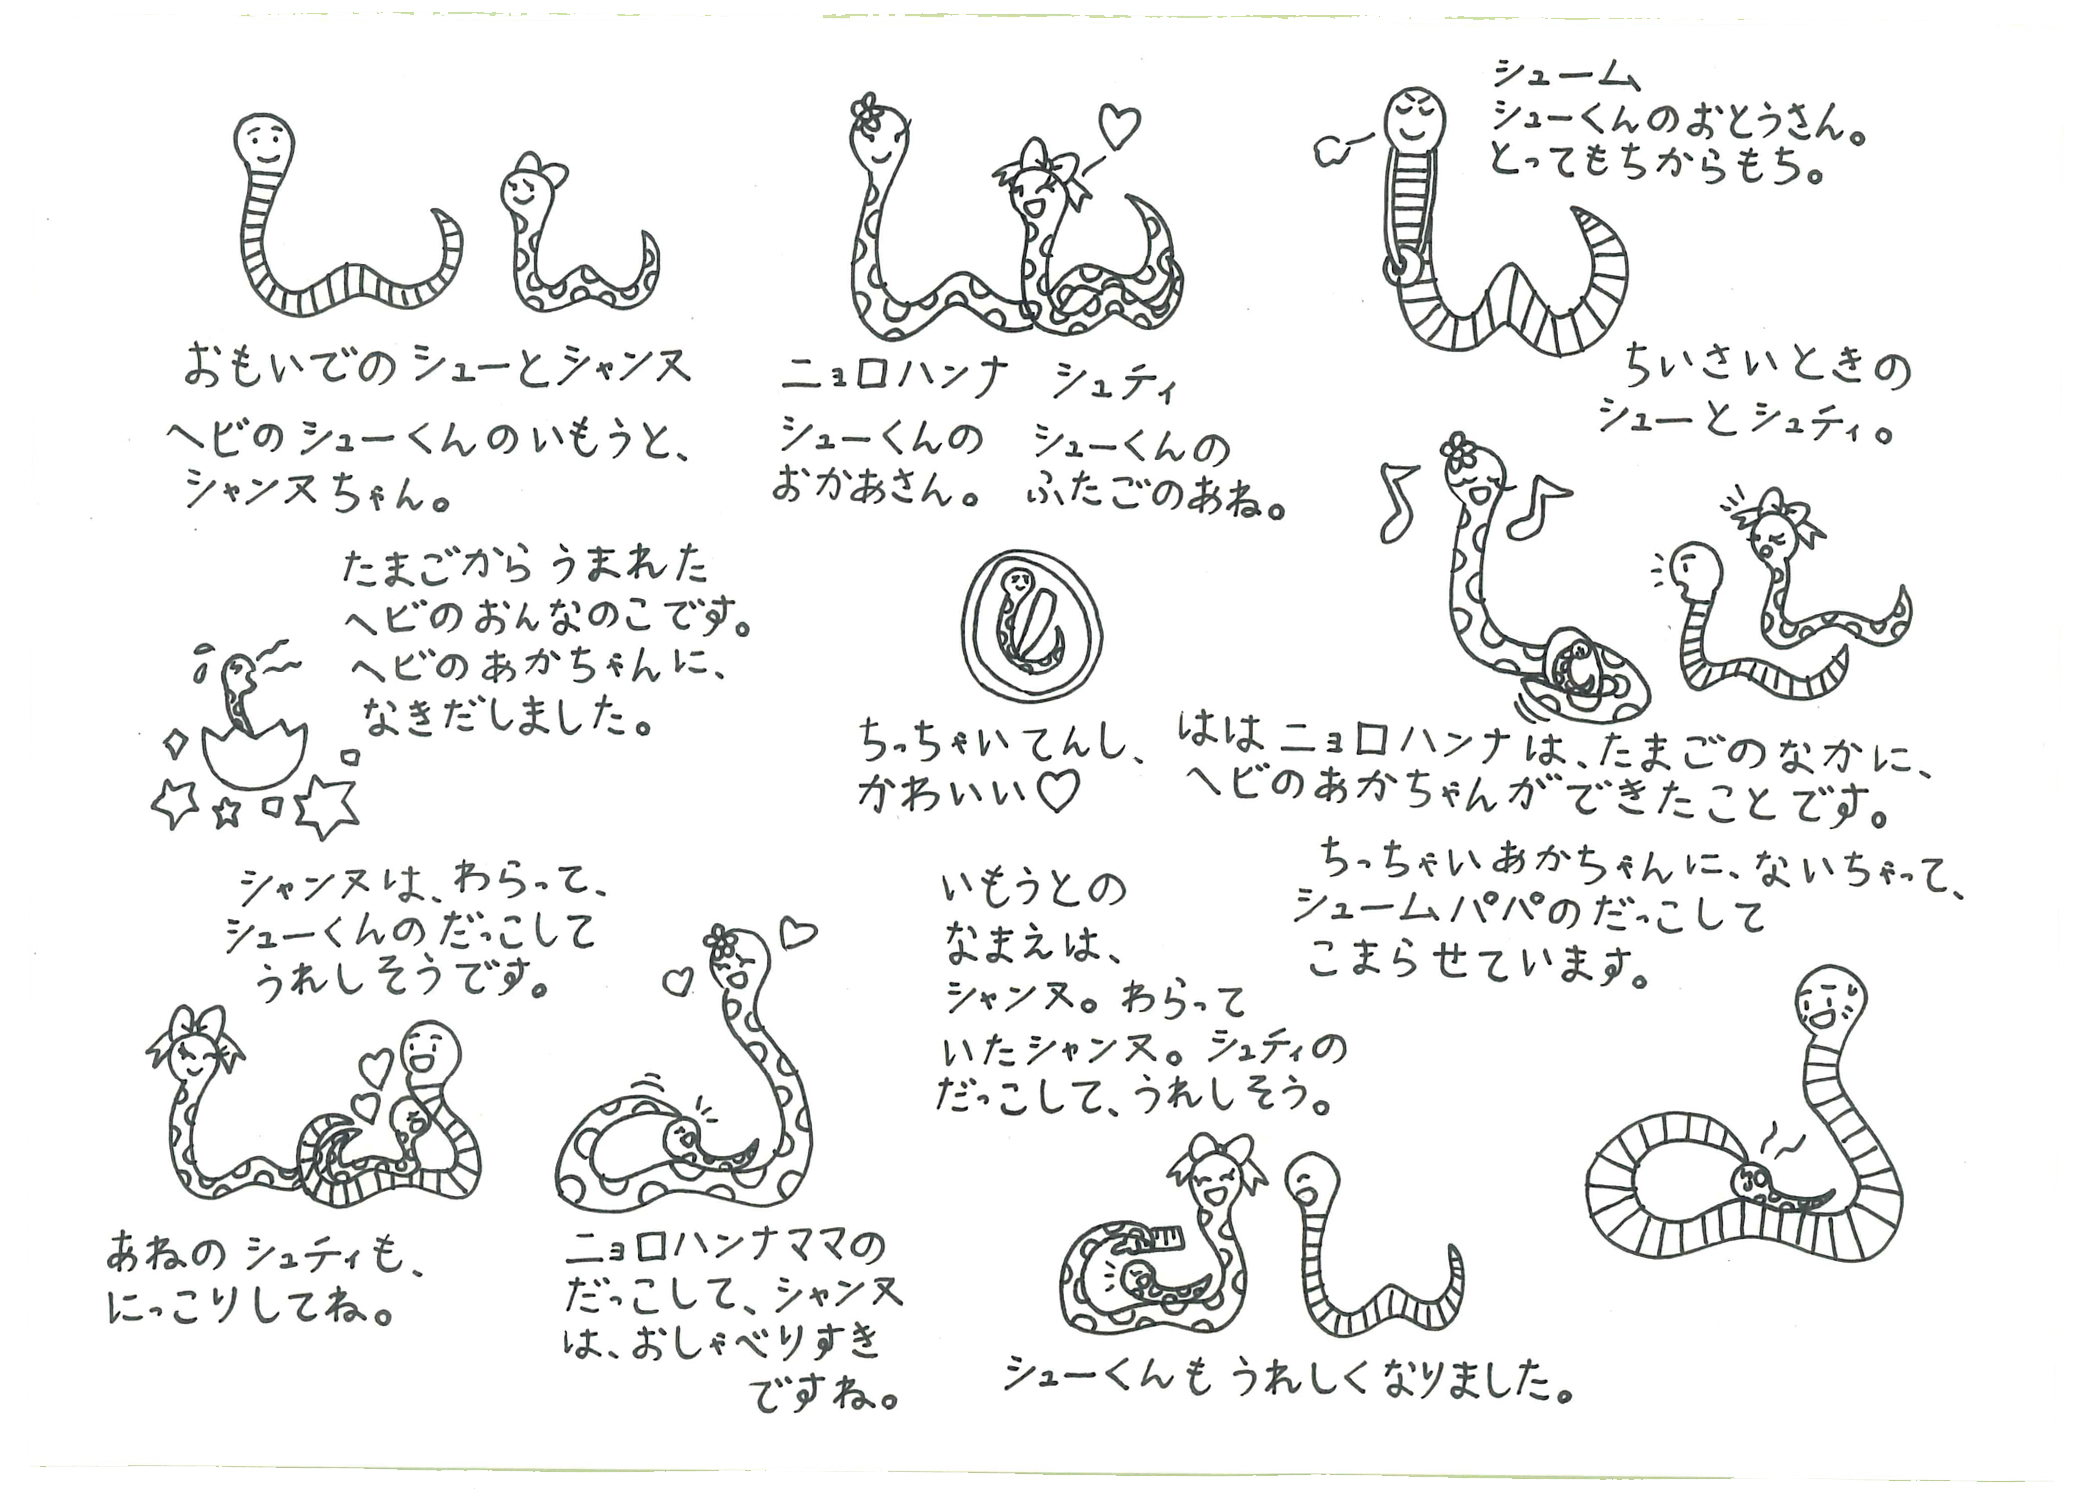 おもいでのシューとシャンヌ
ヘビのシューくんのいもうと、
シャンヌちゃん。
ニョロハンナ
シューくんの
おかあさん。
シュティ
シューくんの
ふたごのあね。
シューム
シューくんのおとうさん。
とってもちからもち。
ちいさいときの
シューとシュティ。
はは ニョロハンナは、たまごのなかに、
ヘビのあかちゃんができたことです。
ちっちゃいてんし、
かわいい♡
たまごから うまれた
ヘビのおんなのこです。
ヘビのあかちゃんに、
なきだしました。
ちっちゃいあかちゃんに、ないちゃって、
シュームパパのだっこして
こまらせています。
いもうとの
なまえは、
シャンヌ。わらって
いたシャンヌ。シュティの
だっこして、うれしそう。
シューくんも うれしくなりました。
シャンヌは、わらって、
シューくんのだっこして
うれしそうです。
あねの シュティも、
にっこりしてね。
ニョロハンナママの
だっこして、シャンヌ
は、おしゃべりすき
ですね。